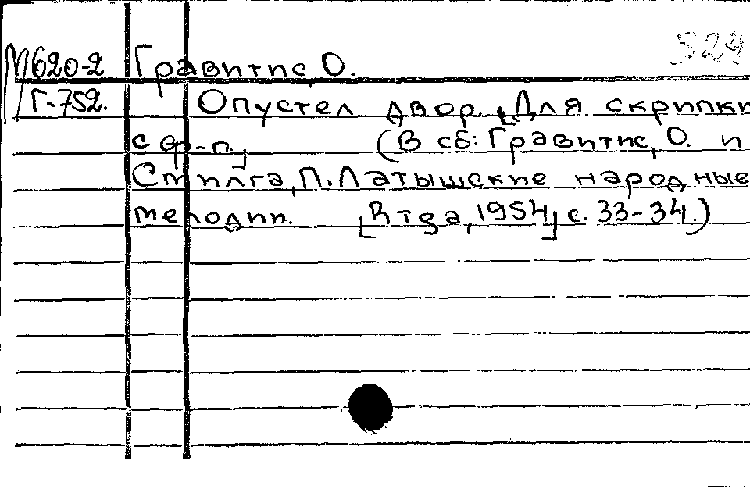 529
М620-2 Гравитис, О.
Г-752. Опустел двор. [Для скрипки
с ф-п.] (В сб: Гравитис, О. и
Стилга, П. Латышские народные
мелодии. [Rīga, 1954] с. 33-34.)